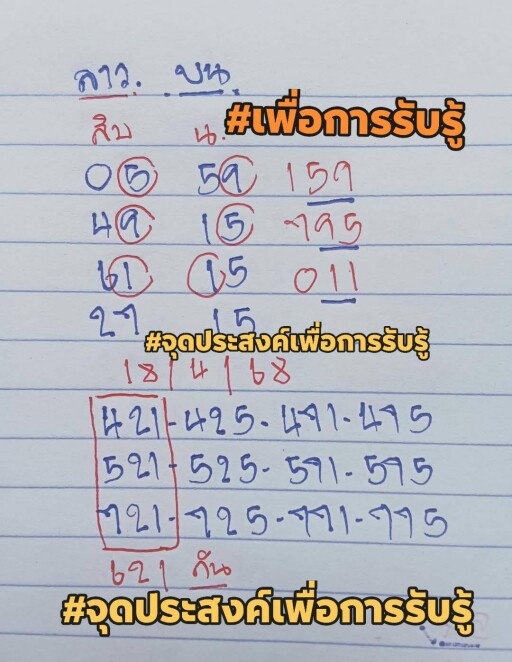 ลาว. บน.
สิบ น.
#เพื่อการรับรู้
05 59 159
49 15 795
61 15 011
27 15
#จุดประสงค์เพื่อการรับรู้
18/4/68
421-425-471-475
521-525-571-575
721-725-771-775
621 กัน
#จุดประสงค์เพื่อการรับรู้